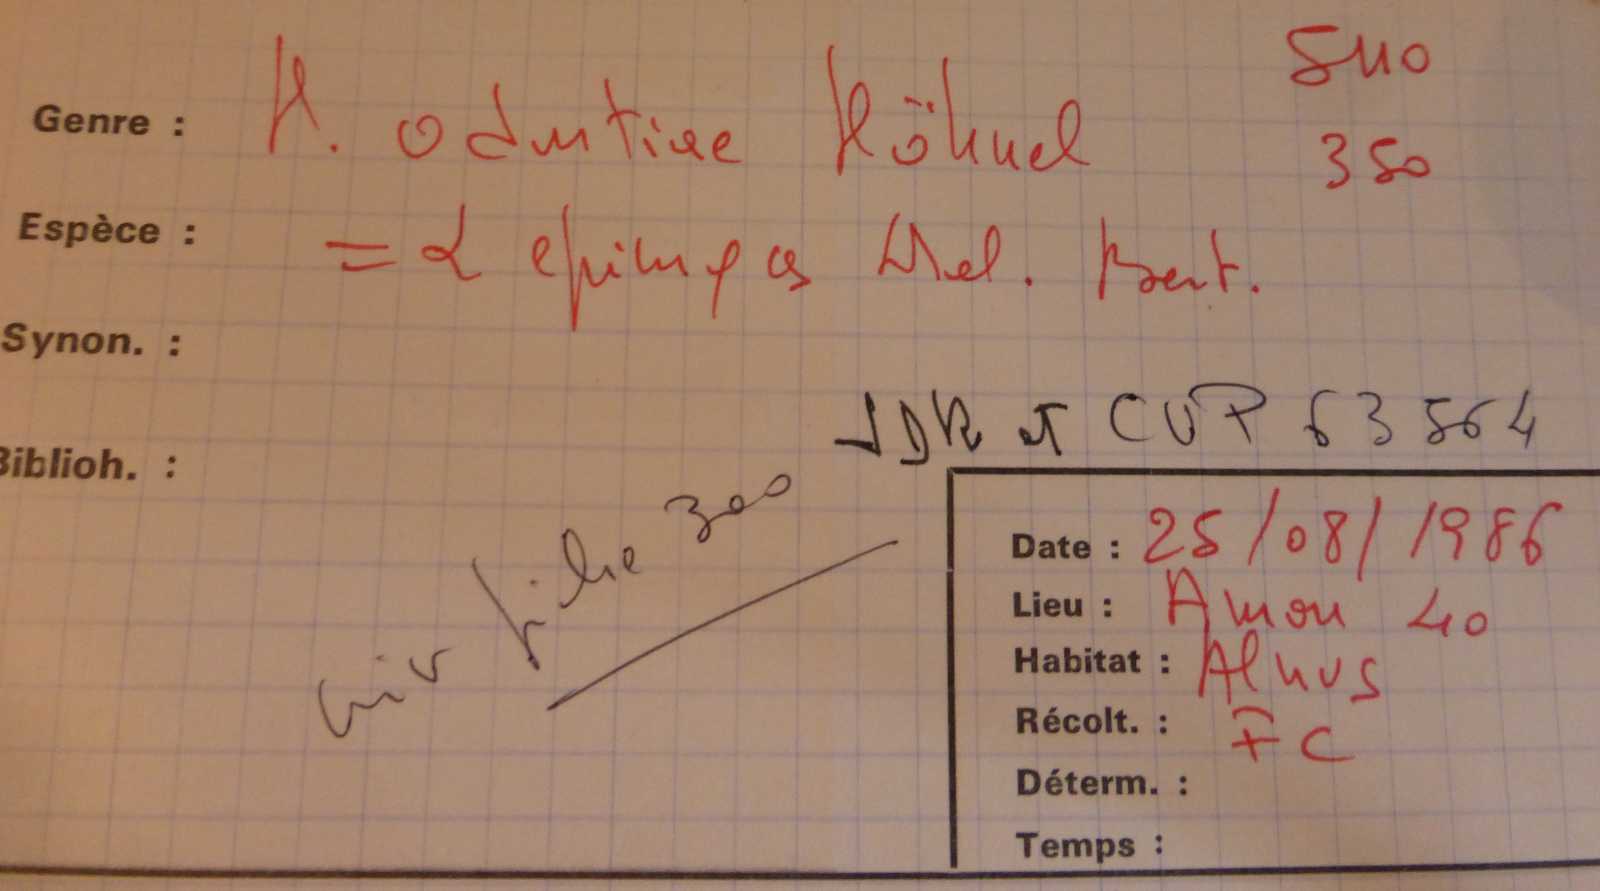 Genre : H. odontiae Höhnel 540
350
Espèce : = L epimyces Mel. Bert.
Synon. :
JDR et CUP 63564
Biblioh. :
voir fiche 300
Date : 25/08/1986
Lieu : Amou 40
Habitat : Alnus
Récolt. : FC
Déterm. :
Temps :